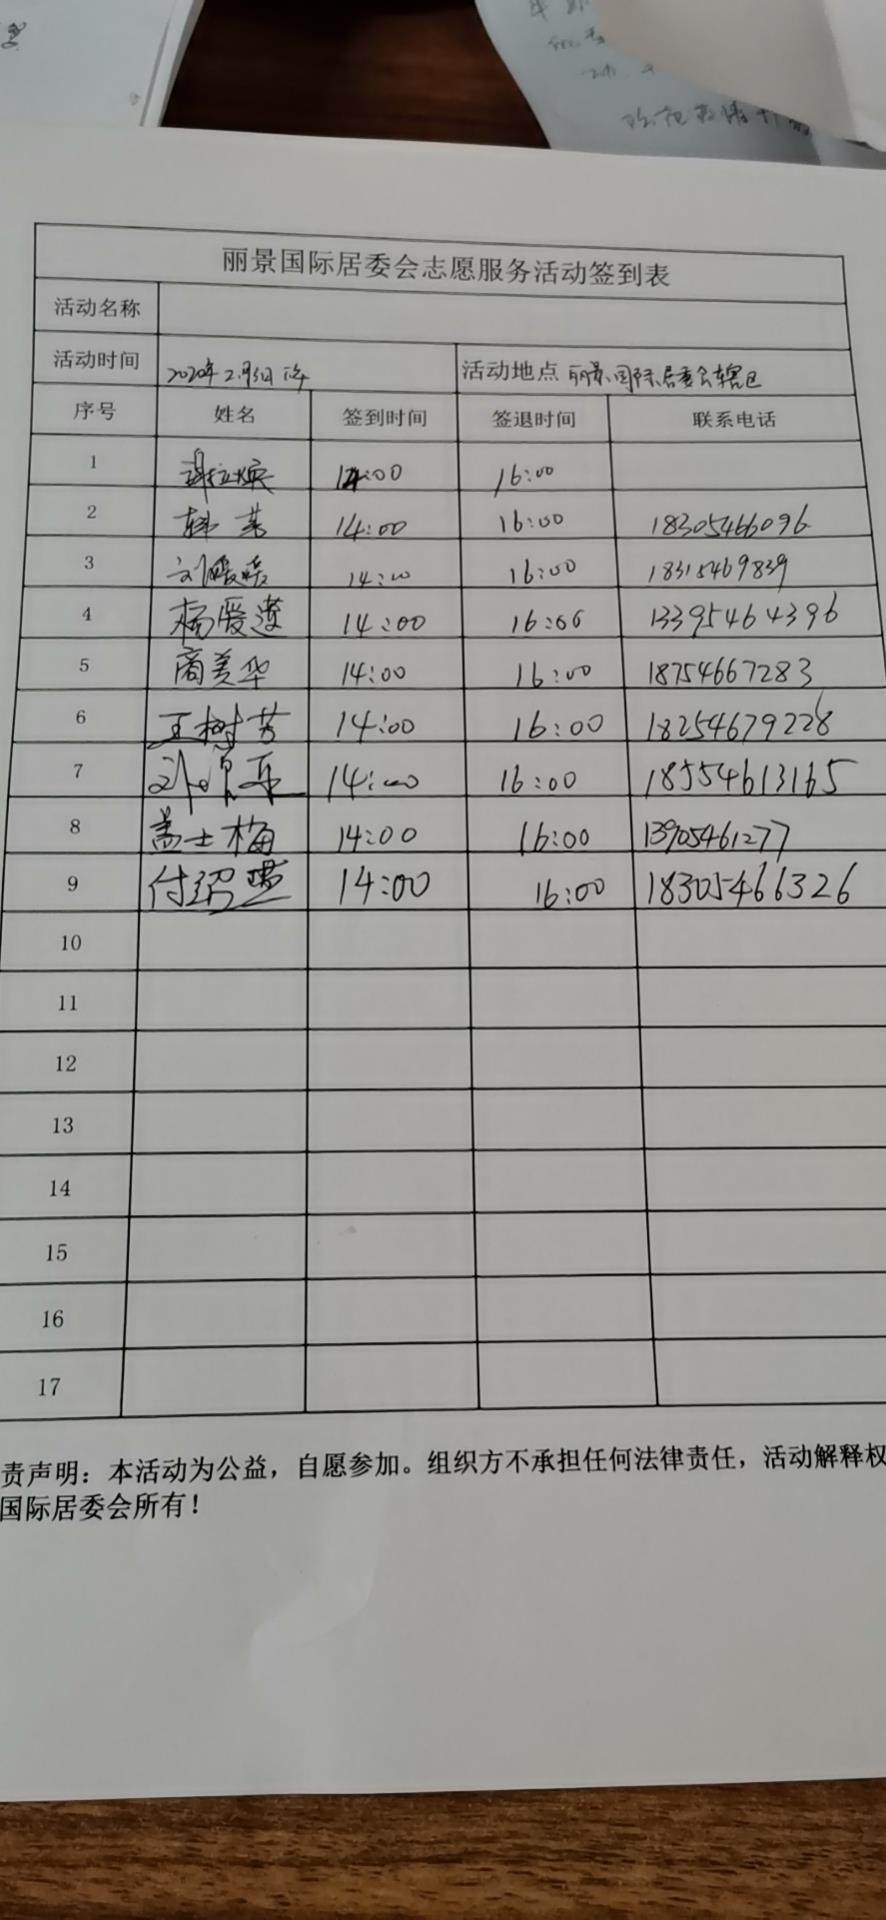 丽景国际居委会志愿服务活动签到表
活动名称
活动时间 2020年2月5日下午 活动地点 丽景国际居委会辖区
序号 姓名 签到时间 签退时间 联系电话
1 14:00 16:00
2 韩芳 14:00 16:00 18305466096
3 刘暖暖 14:00 16:00 18315469839
4 杨爱莲 14:00 16:00 13395464396
5 商美华 14:00 16:00 18754667283
6 王树芳 14:00 16:00 18254679228
7 14:00 16:00 18554613165
8 盖士梅 14:00 16:00 13905461277
9 付绍 14:00 16:00 18305466326
10
11
12
13
14
15
16
17
责声明：本活动为公益，自愿参加。组织方不承担任何法律责任，活动解释权
国际居委会所有！